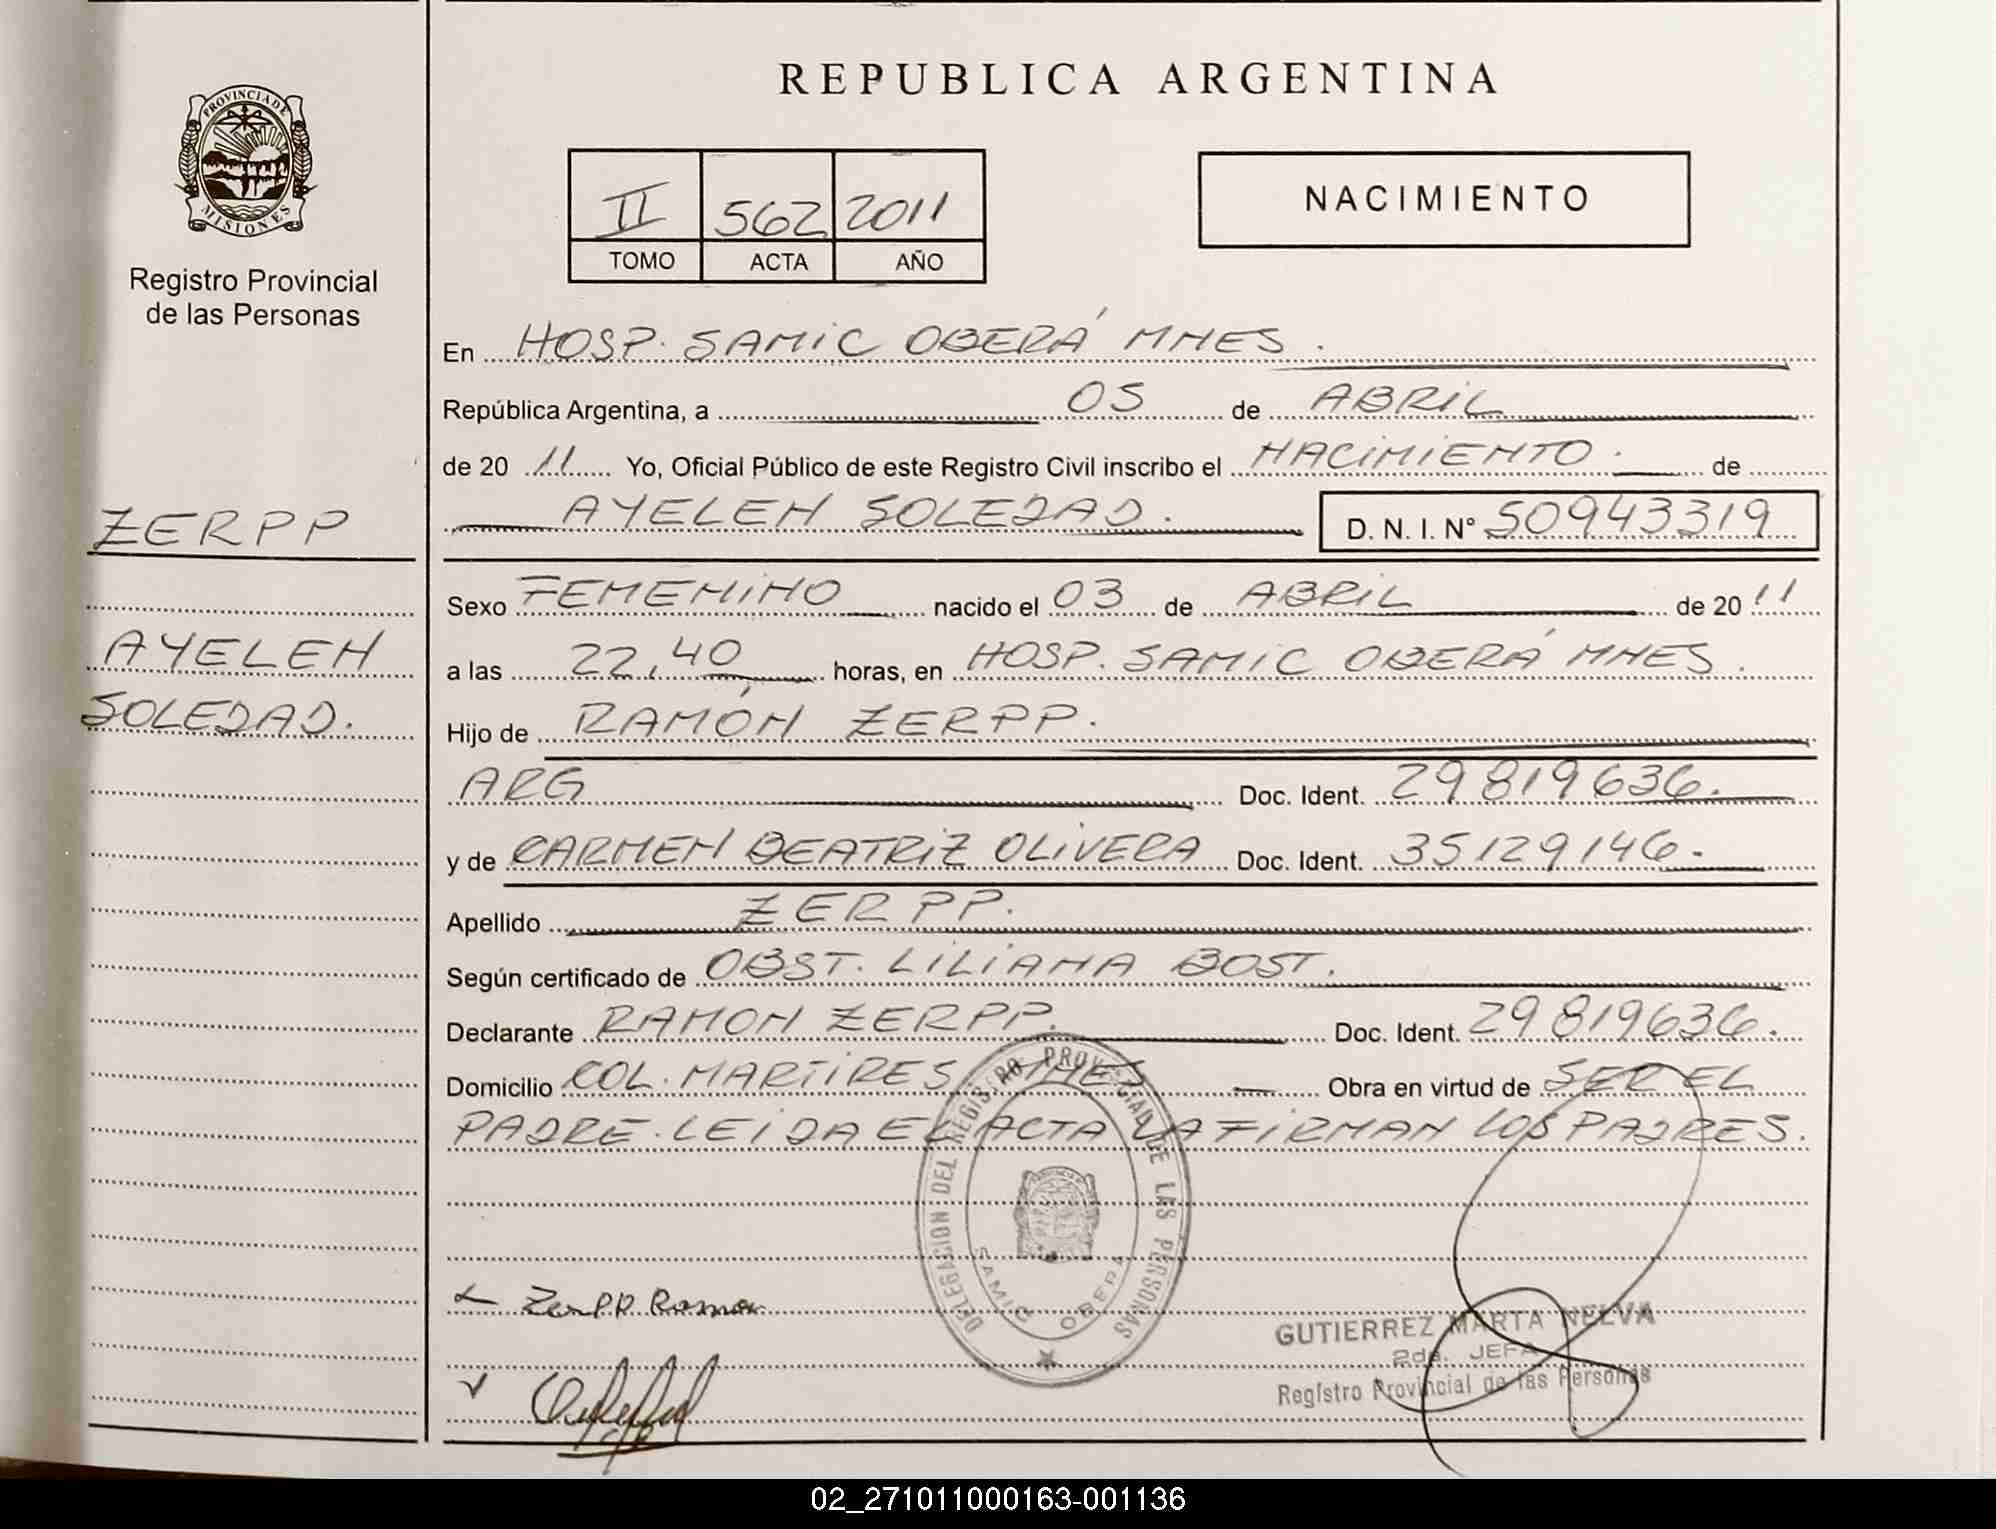 REPUBLICA ARGENTINA
PROVINCIA DE
MISIONES
Registro Provincial
de las Personas
II 562 2011
TOMO ACTA AÑO
NACIMIENTO
En HOSP. SAMIC OBERÁ MNES.
República Argentina, a 05 de ABRIL
de 20 11 Yo, Oficial Público de este Registro Civil inscribo el NACIMIENTO. de
AYELEN SOLEDAD. D. N. I. N° 50943319
ZERPP
AYELEN
SOLEDAD.
Sexo FEMENINO nacido el 03 de ABRIL de 20 11
a las 22,40 horas, en HOSP. SAMIC OBERÁ MNES.
Hijo de RAMÓN ZERPP.
ARG Doc. Ident. 29819636.
y de CARMEN BEATRIZ OLIVERA Doc. Ident. 35129146.
Apellido ZERPP.
Según certificado de OBST. LILIANA BOST.
Declarante RAMON ZERPP. Doc. Ident. 29819636.
Domicilio COL. MARTIRES MNES Obra en virtud de SER EL
PADRE. LEIDA EL ACTA LA FIRMAN LOS PADRES.
DELEGACION DEL REGISTRO PROVINCIAL DE LAS PERSONAS
SAMIC OBERA
Zerpp Ramon
GUTIERREZ MARTA NELVA
2da. JEFA
Registro Provincial de las Personas
02_271011000163-001136